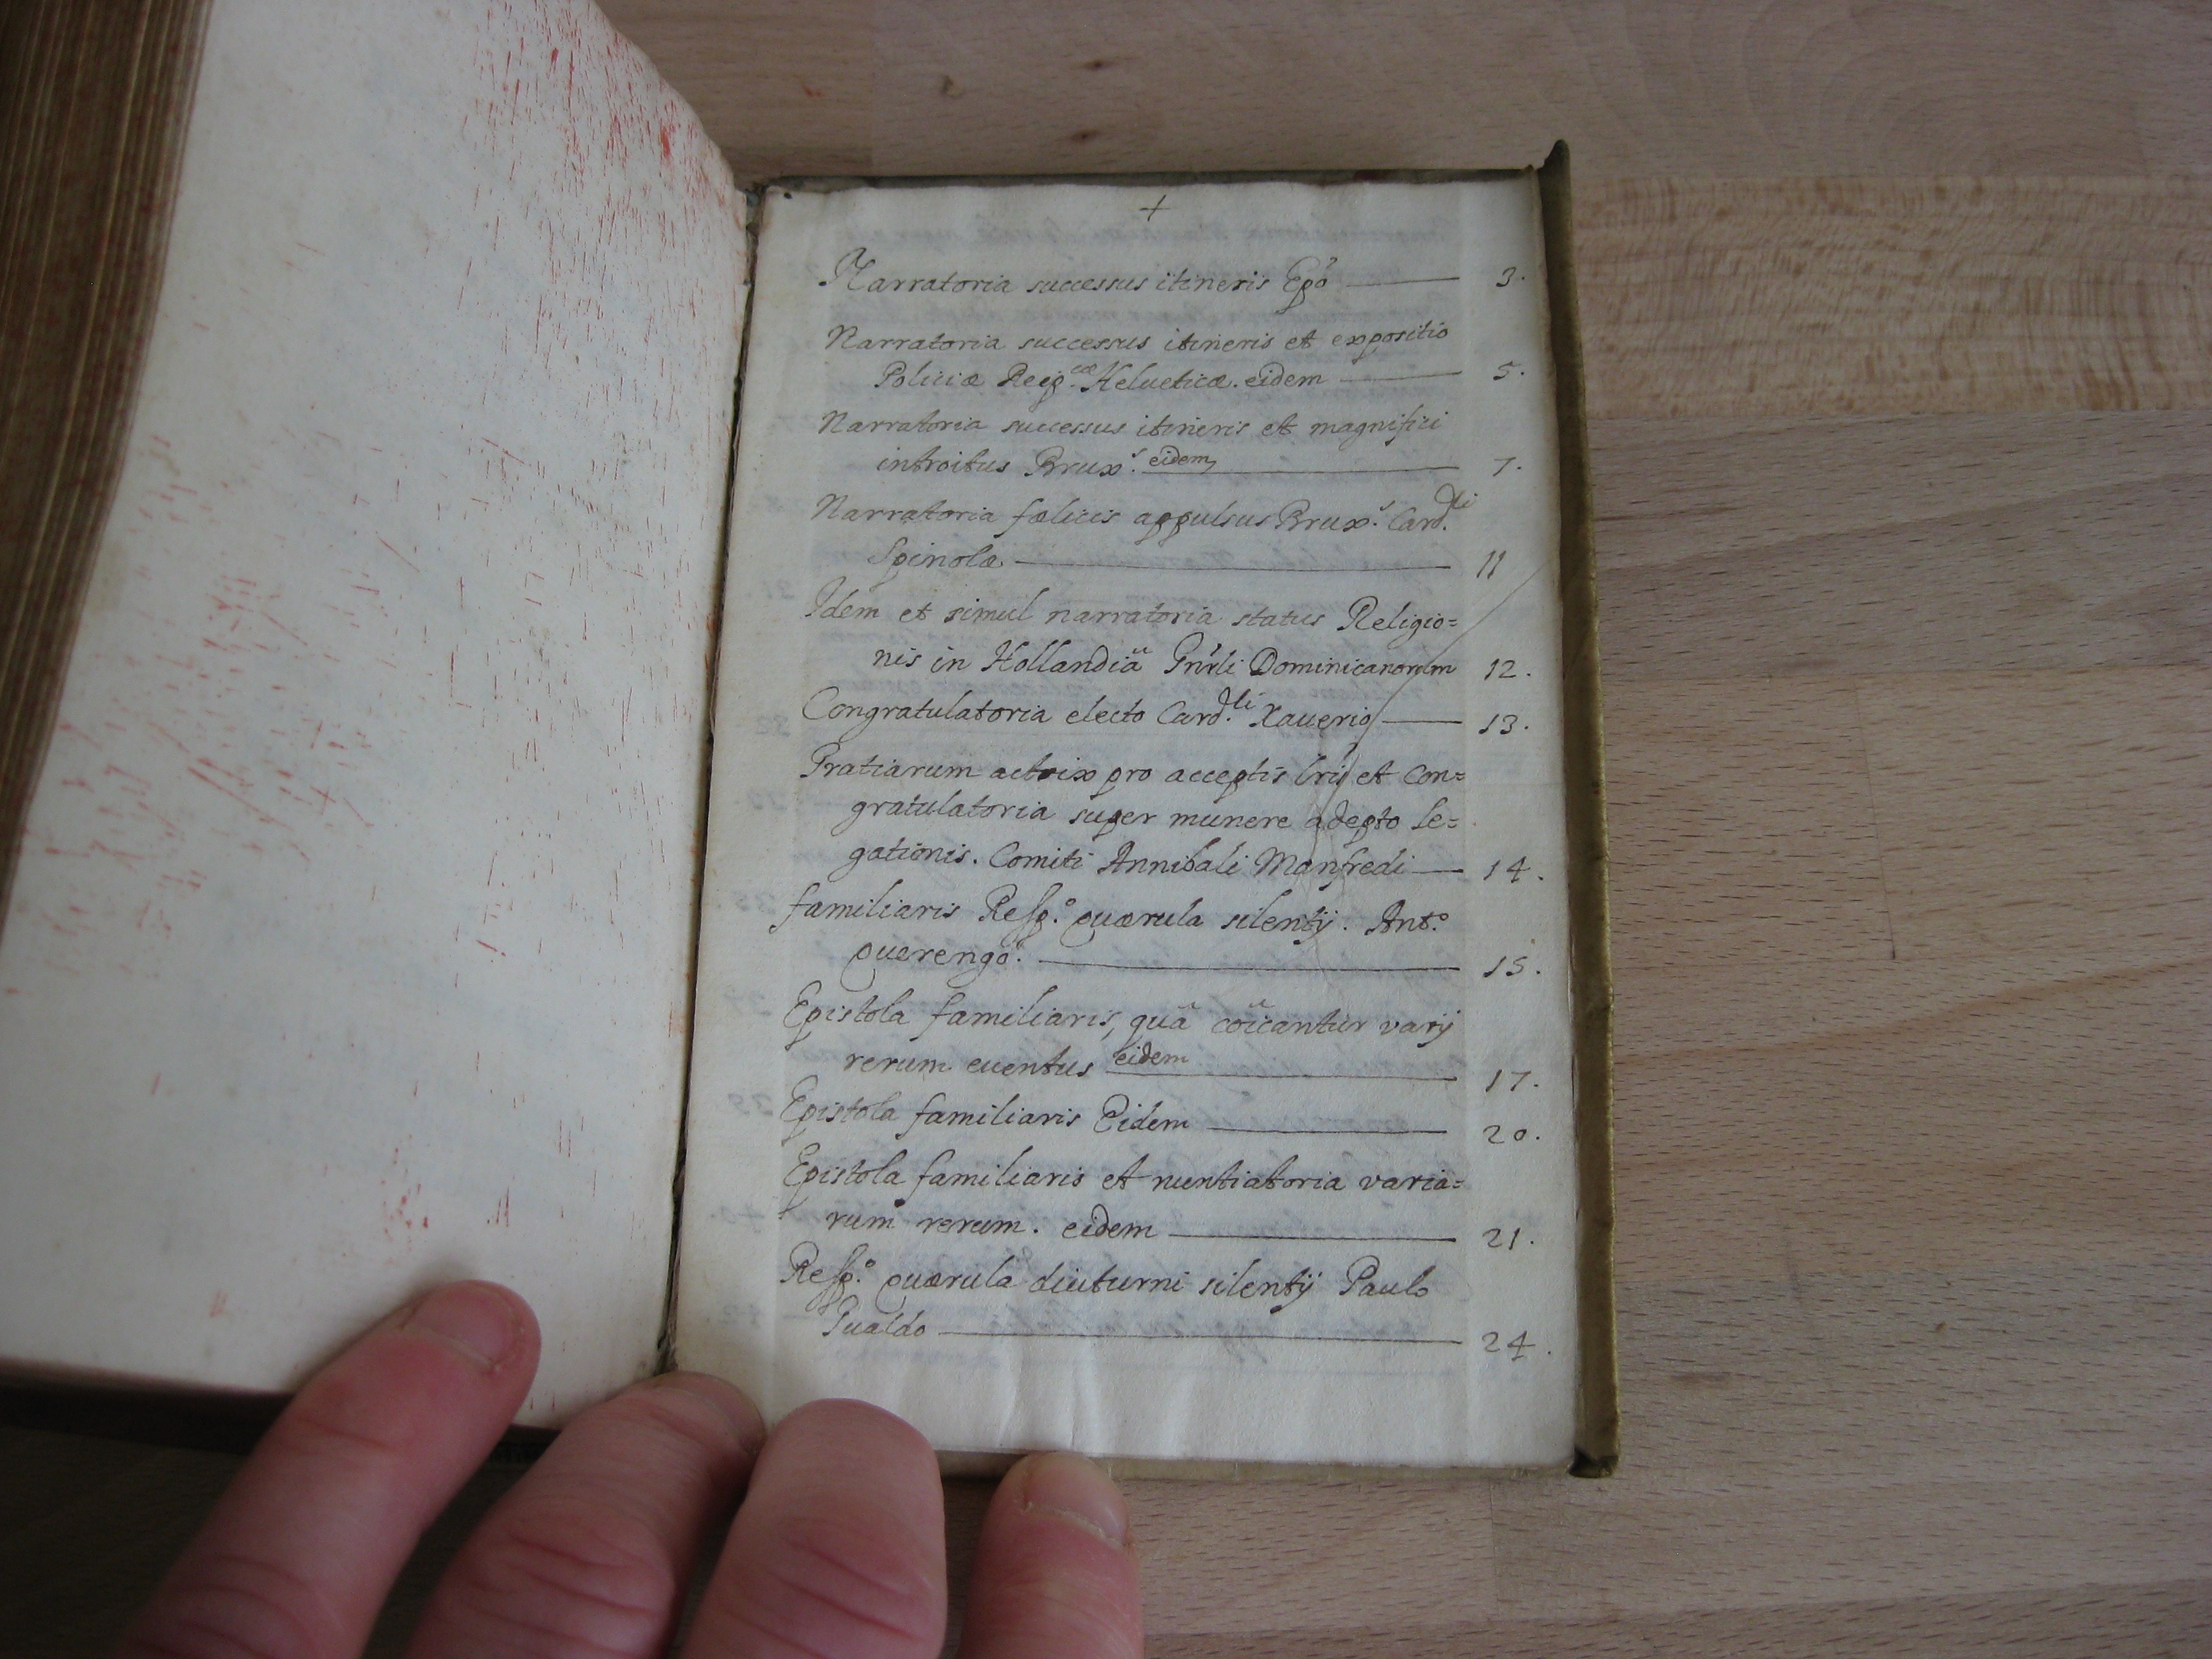 +
Narratoria successus itineris Epõ — 3.
Narratoria successus itineris et expositio
Policiæ Reip.cæ Helueticæ. eidem — 5.
Narratoria successus itineris et magnifici
introitus Brux.s eidem — 7.
Narratoria fælicis appulsus Brux.s Card.li
Spinolæ — 11
Idem et simul narratoria status Religio=
nis in Hollandiâ Gnrli Dominicanorum 12.
Congratulatoria electo Card.li Xauerio — 13.
Gratiarum actrix pro acceptis lris et con=
gratulatoria super munere adepto le=
gationis. Comiti Annibali Manfredi — 14.
familiaris Resp.o quærula silentij. Ant.o
querengo. — 15.
Epistola familiaris, quâ coicantur varij
rerum euentus eidem — 17.
Epistola familiaris Eidem — 20.
Epistola familiaris et nuntiatoria varia=
rum rerum. eidem — 21.
Resp.o quærula diuturni silentij Paulo
Gualdo — 24.